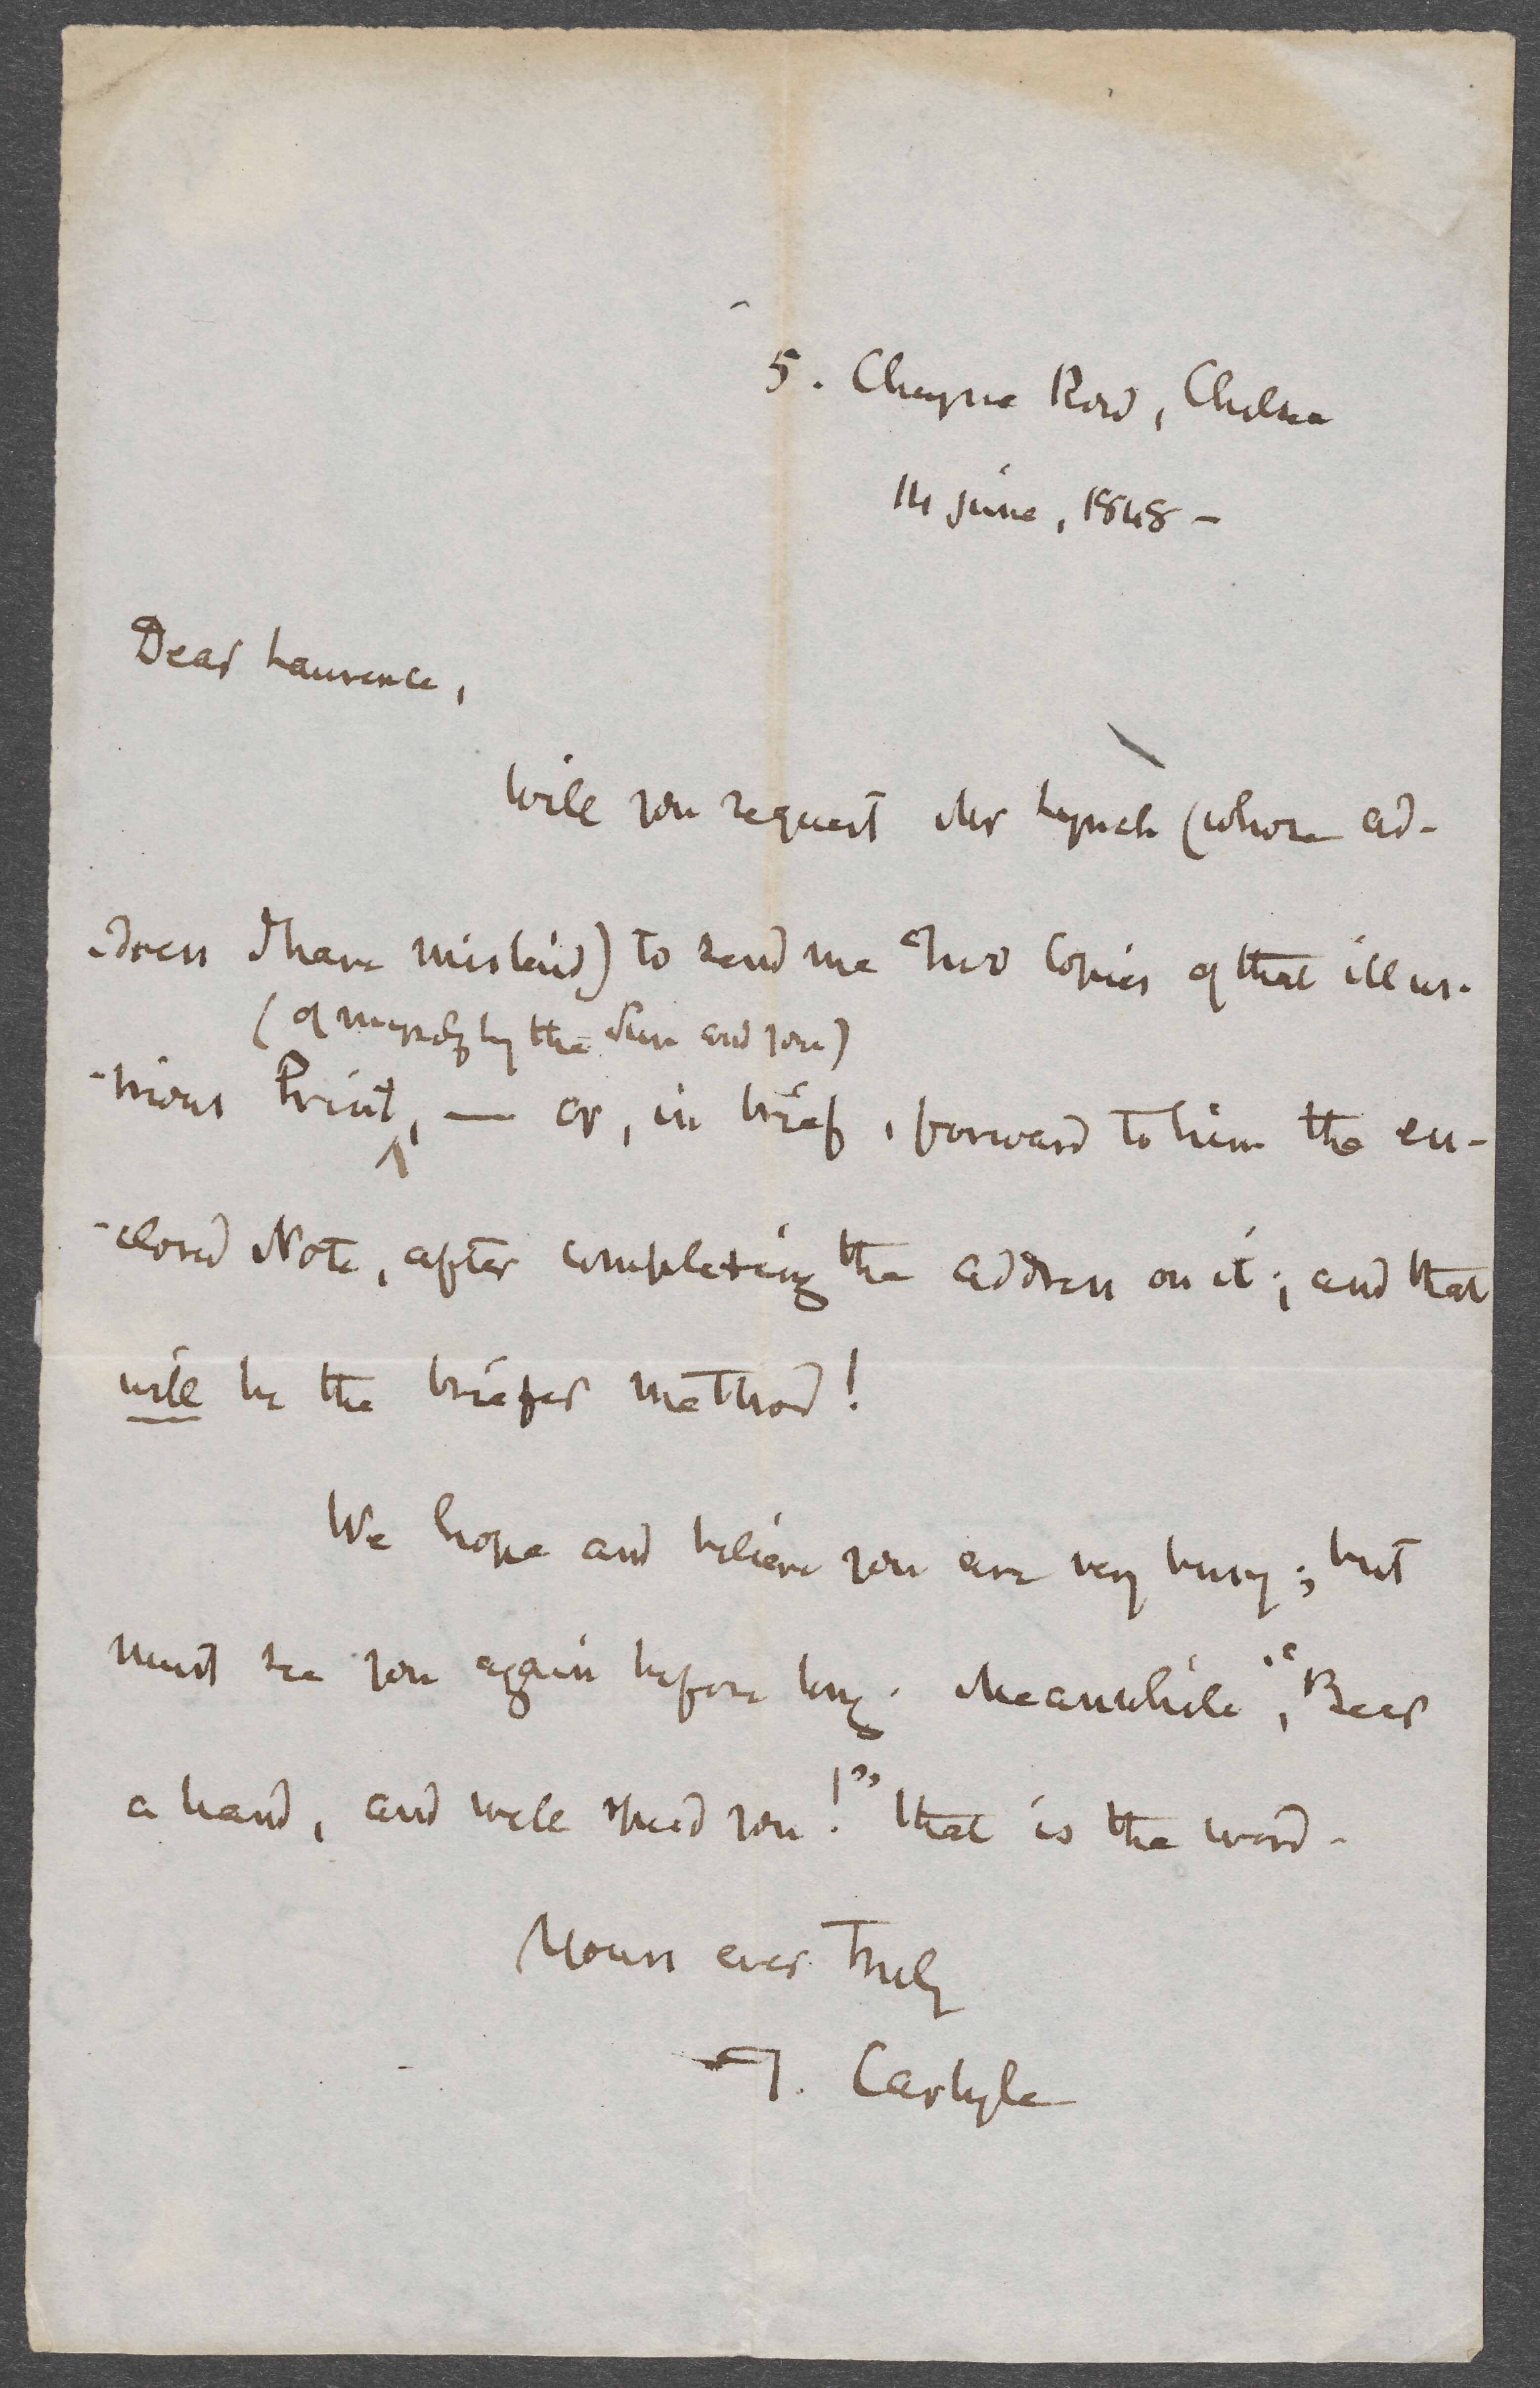 5. Cheyne Row, Chelsea
14 june, 1848 –
Dear Laurence,
Will you request Mr Lynch (whose ad-
-dress I have mislaid) to send me Two Copies of that illus-
(of myself by the Sun and you)
-trious Print, — or, in brief, forward to him the en-
-closed Note, after completing the address on it; and that
will be the briefer method!
We hope and believe you are very busy; but
must see you again before long. Meanwhile, "Bear
a hand, and well speed you!" that is the word.
Yours ever truly
T. Carlyle